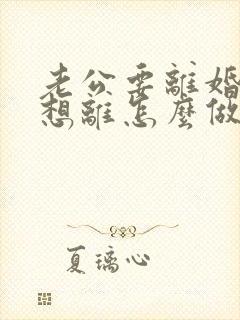 老公要離婚
想離怎麼做
夏璃心